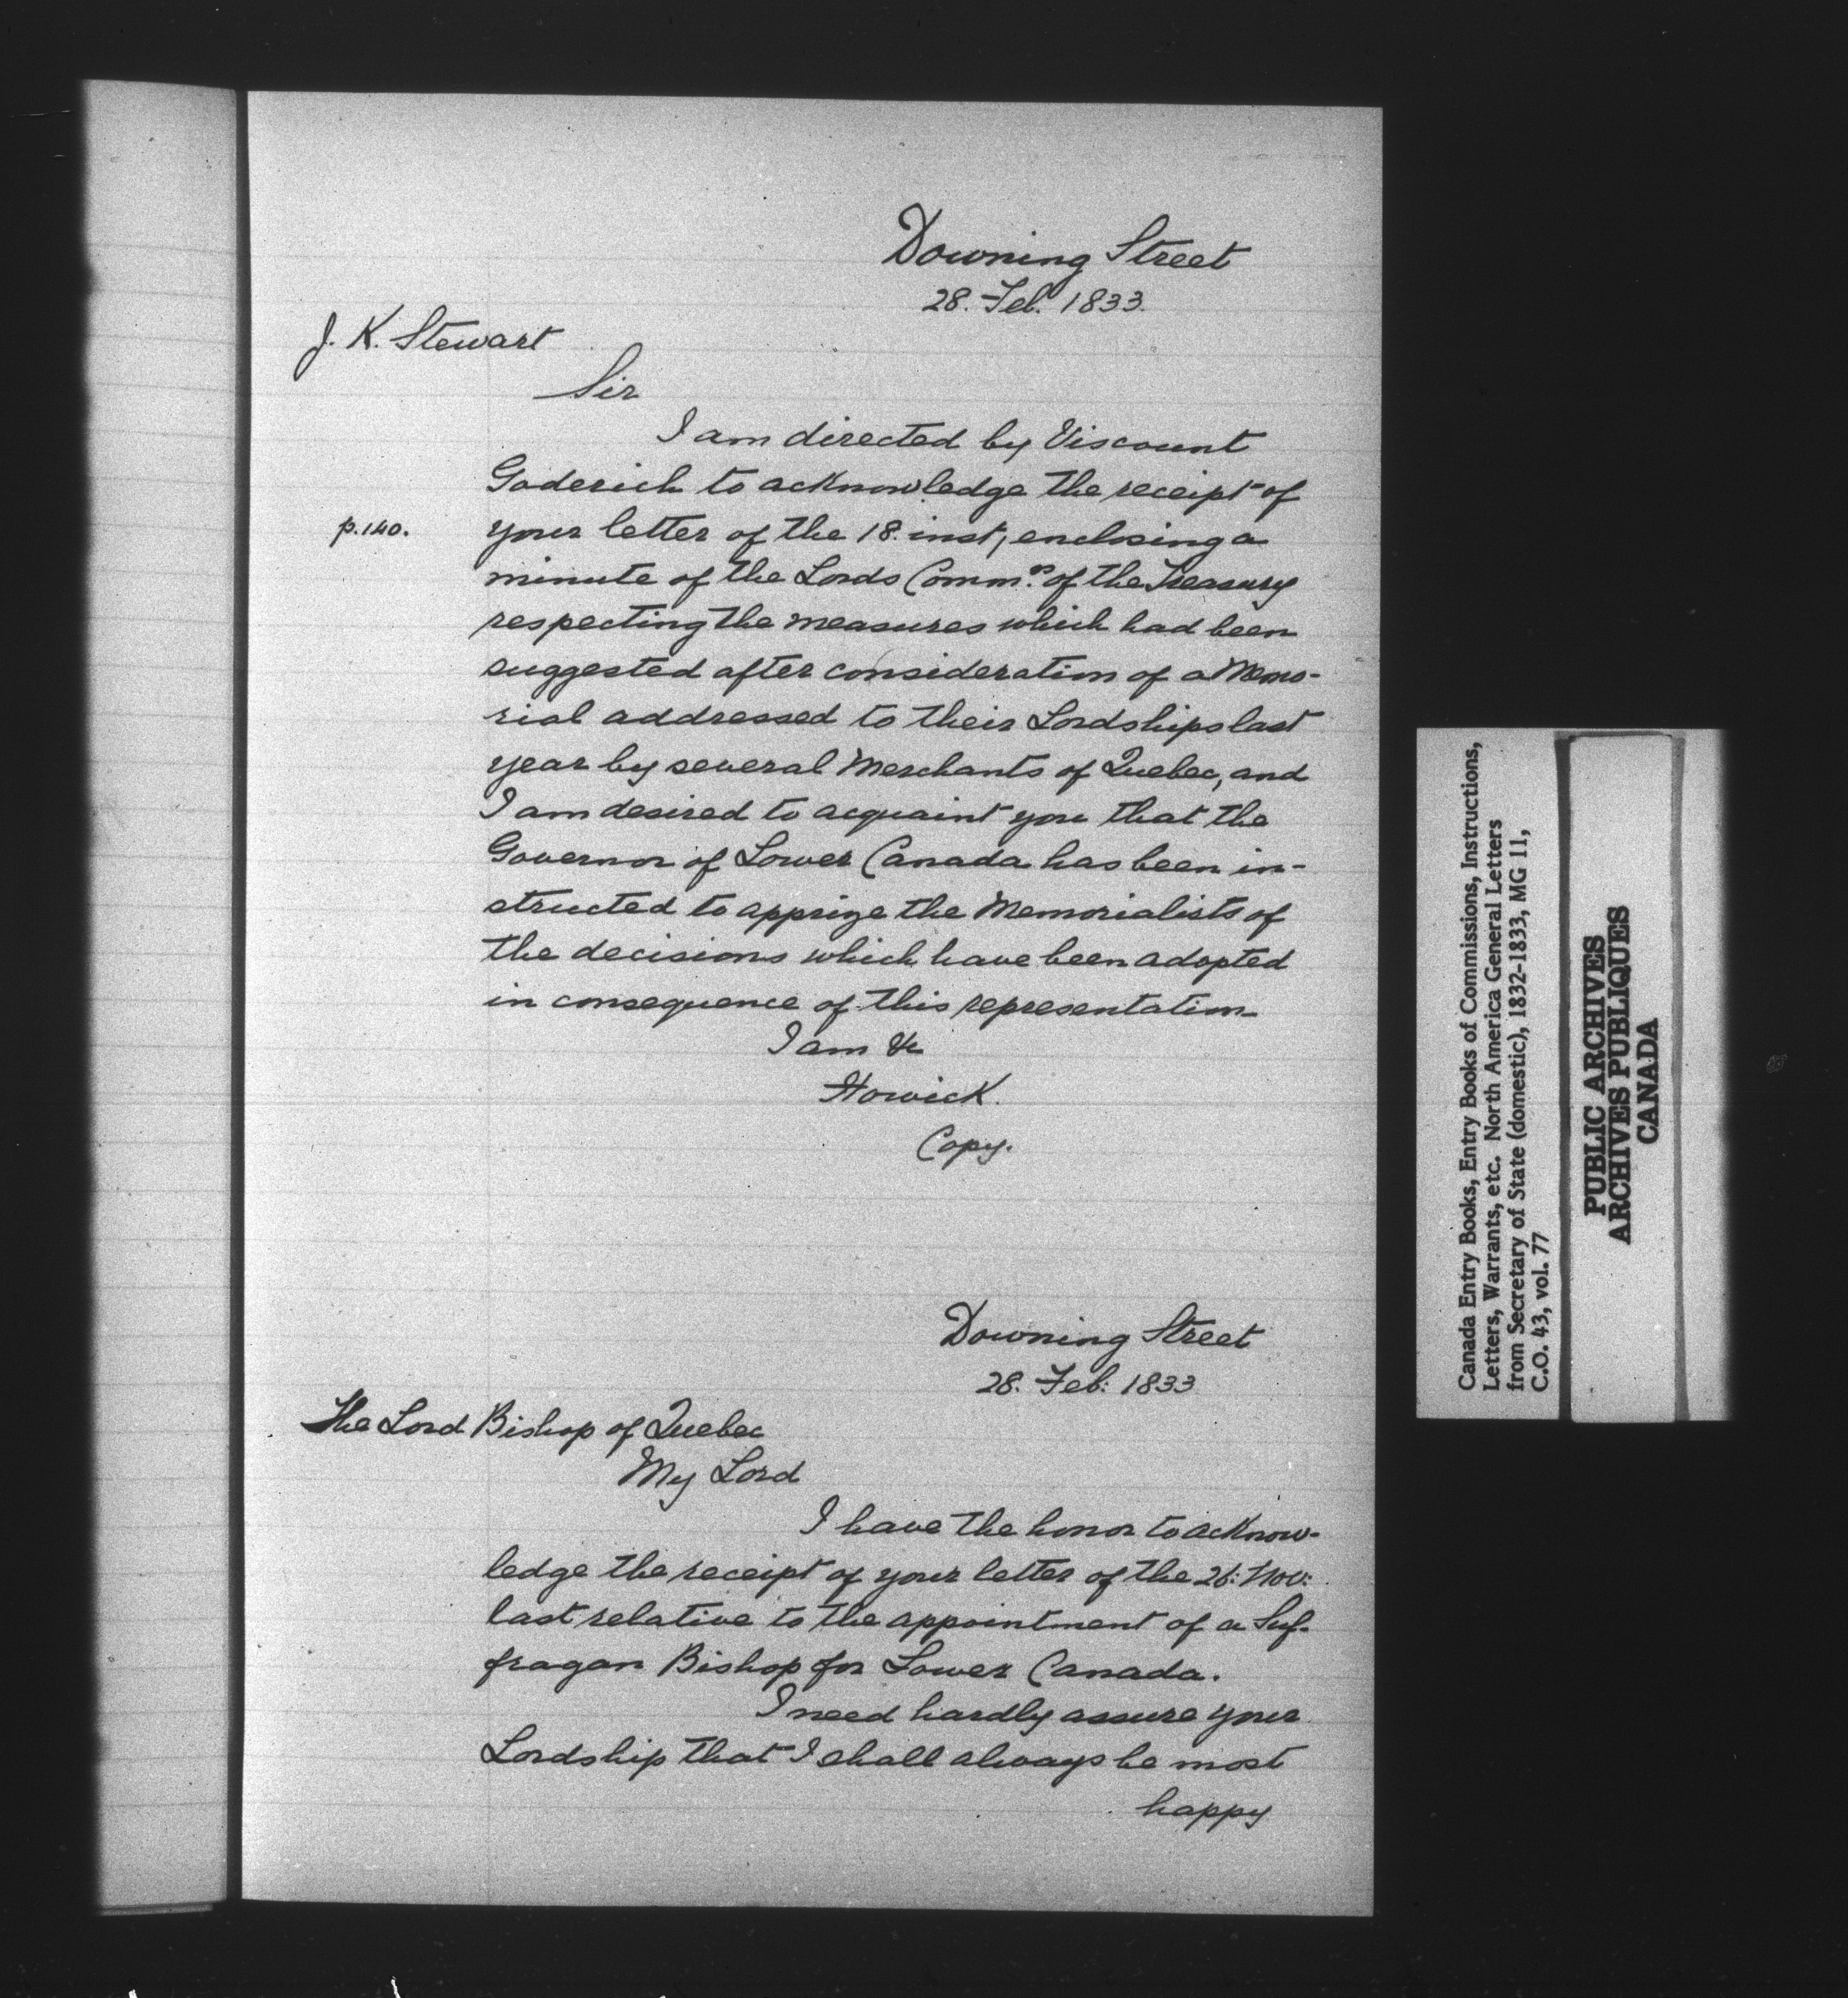 Downing Street
28. Feb. 1833.
J. K. Stewart
Sir
I am directed by Viscount
Goderich to acknowledge the receipt of
p. 140.
your letter of the 18. inst, enclosing a
minute of the Lords Comm.rs of the Treasury
respecting the measures which had been
suggested after consideration of a Memo-
rial addressed to their Lordships last
year by several Merchants of Quebec, and
I am desired to acquaint you that the
Governor of Lower Canada has been in-
structed to apprize the Memorialists of
the decisions which have been adopted
in consequence of this representation.
I am &c
Howick.
Copy.
Downing Street
28. Feb: 1833
The Lord Bishop of Quebec
My Lord
I have the honor to acknow-
ledge the receipt of your letter of the 26: Nov:
last relative to the appointment of a Suf-
fragan Bishop for Lower Canada.
I need hardly assure your
Lordship that I shall always be most
happy
Canada Entry Books, Entry Books of Commissions, Instructions,
Letters, Warrants, etc. North America General Letters
from Secretary of State (domestic), 1832-1833, MG 11,
C.O. 43, vol. 77
PUBLIC ARCHIVES
ARCHIVES PUBLIQUES
CANADA